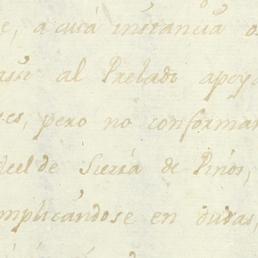 e, a cuia instancia o
asse al Prelado apoy
es, pero no conforman
del de Sierra de Pinos,
mplicandose en dudas,